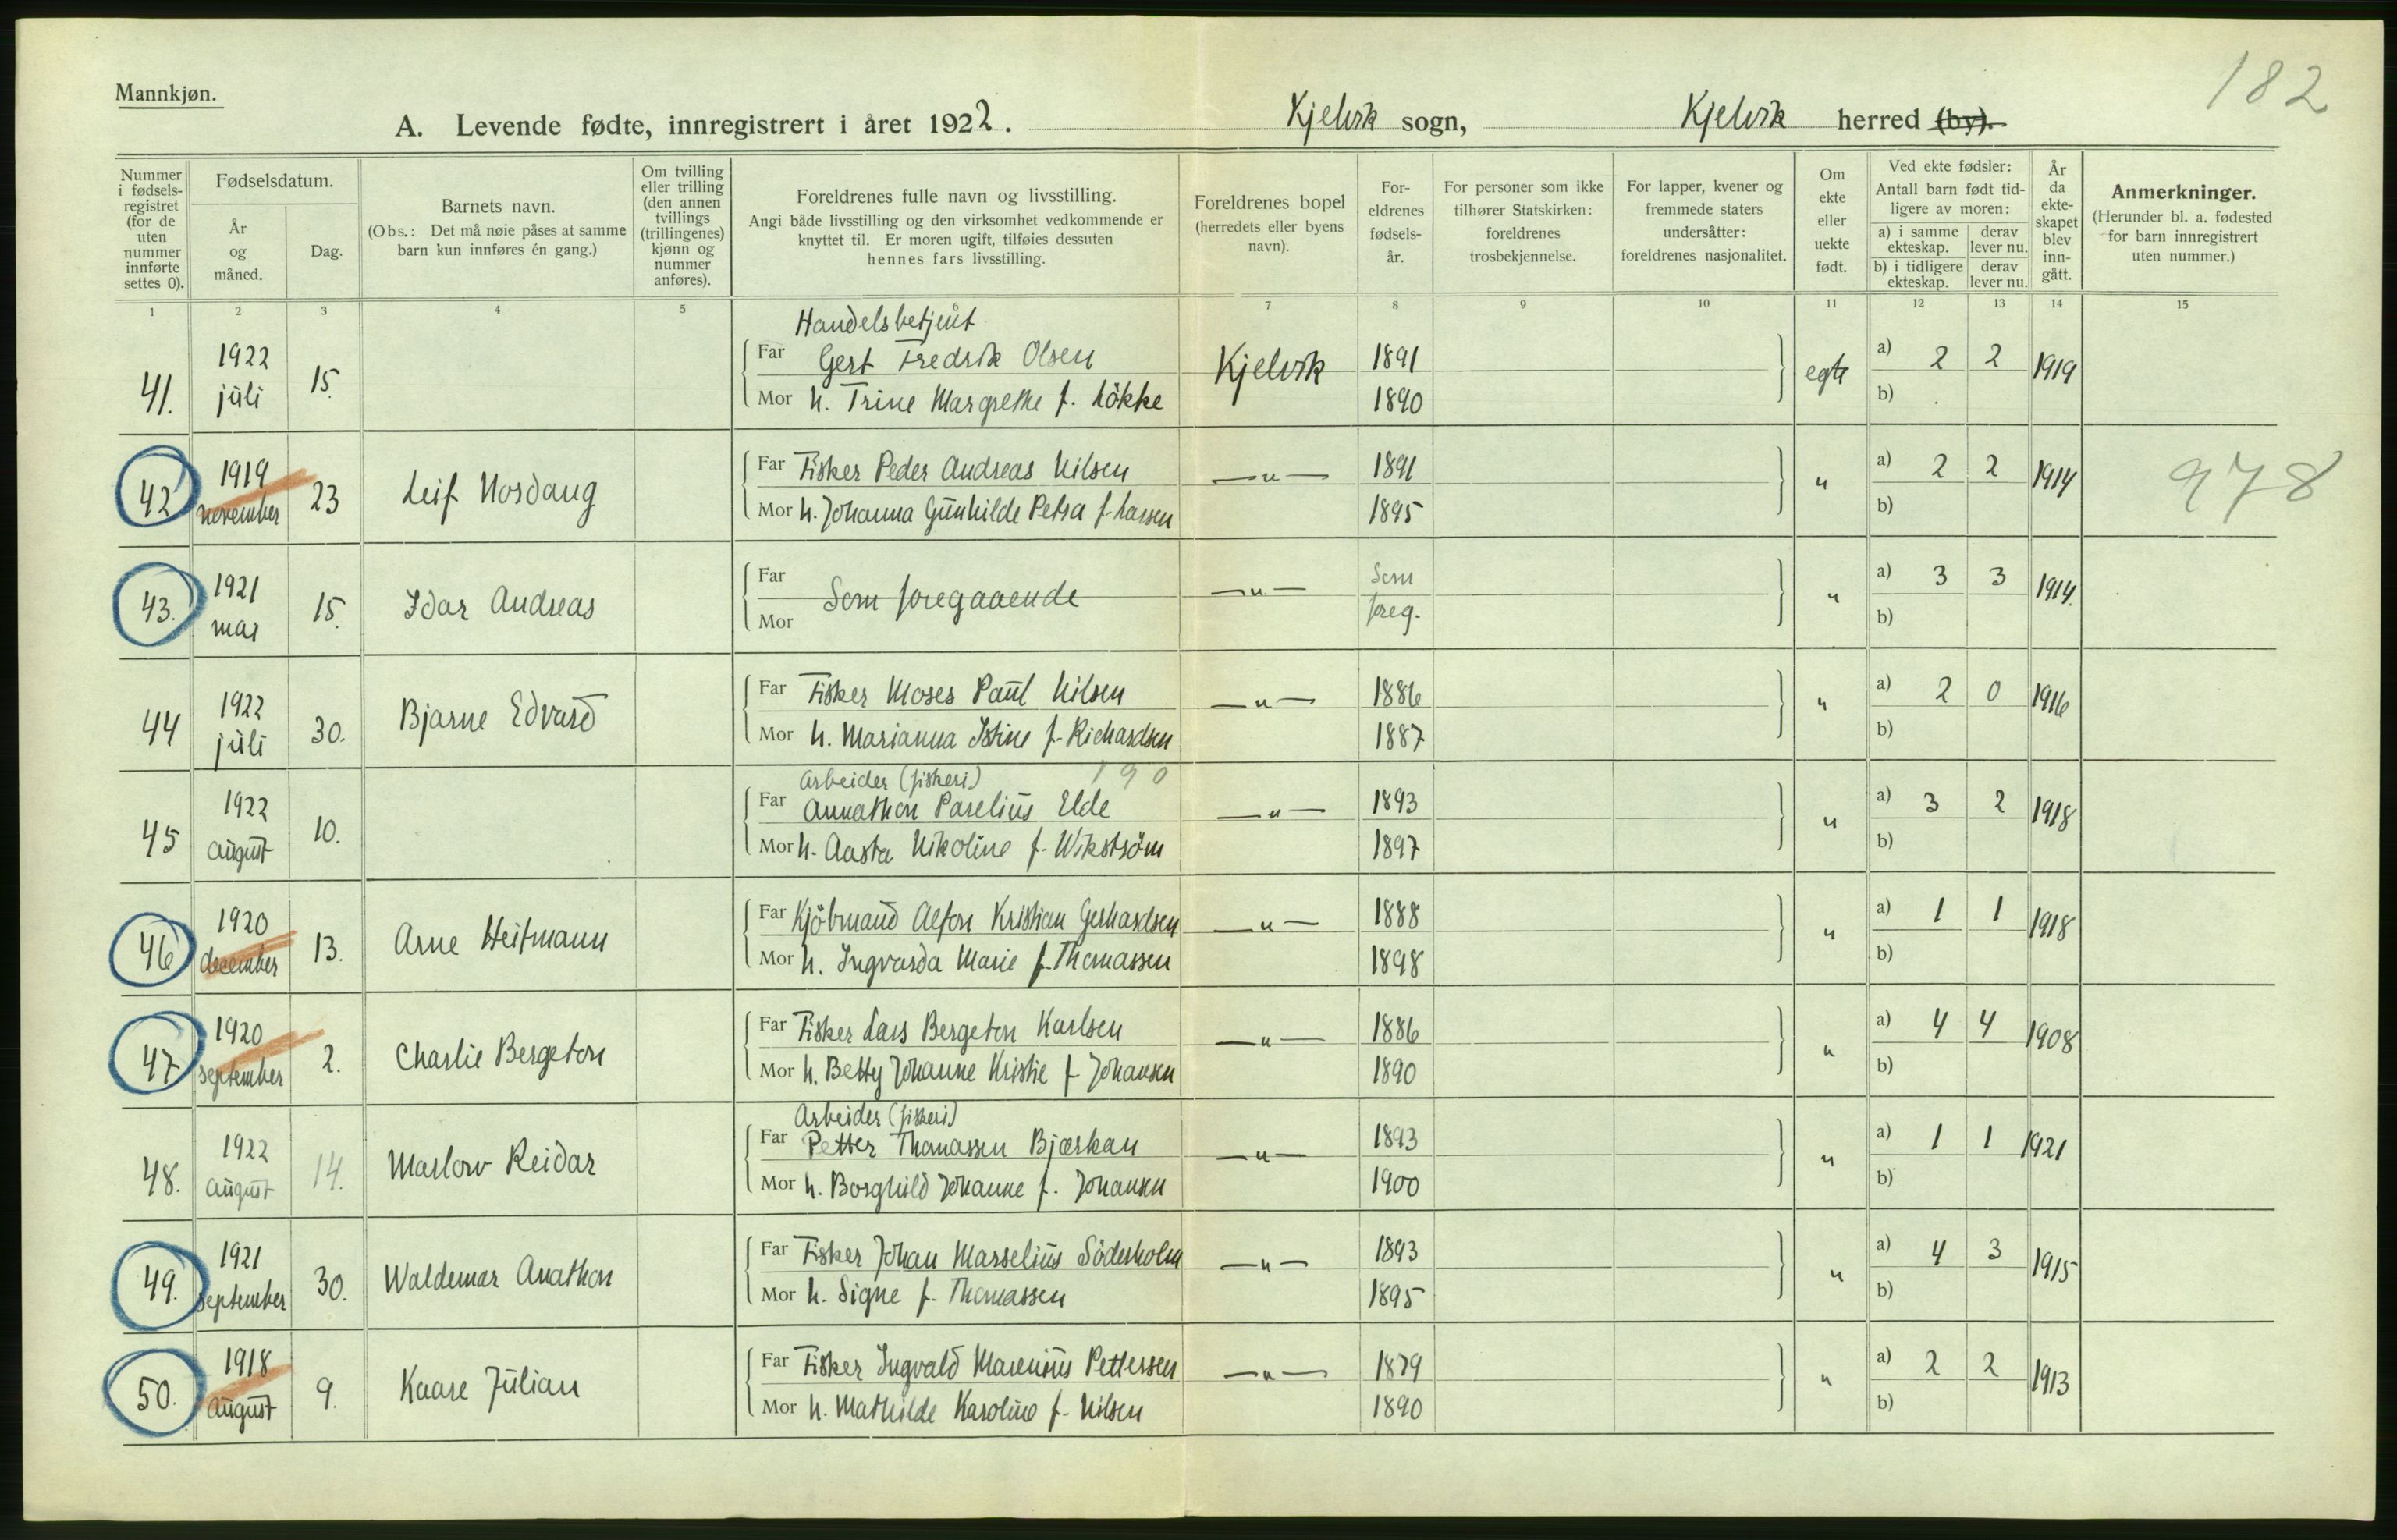 182
Mannkjøn.
A. Levende fødte, innregistrert i året 1922. Kjelvik sogn, Kjelvik herred (by).
Nummer i fødsels-registret (for de uten nummer innførte settes 0).
Fødselsdatum.
År og måned.
Dag.
Barnets navn.
(Obs.: Det må nøie påses at samme barn kun innføres én gang.)
Om tvilling eller trilling (den annen tvillings (trillingenes) kjønn og nummer anføres).
Foreldrenes fulle navn og livsstilling.
Angi både livsstilling og den virksomhet vedkommende er knyttet til. Er moren ugift, tilføies dessuten hennes fars livsstilling.
Foreldrenes bopel (herredets eller byens navn).
For-eldrenes fødsels-år.
For personer som ikke tilhører Statskirken: foreldrenes trosbekjennelse.
For lapper, kvener og fremmede staters undersåtter: foreldrenes nasjonalitet.
Om ekte eller uekte født.
Ved ekte fødsler:
Antall barn født tid-ligere av moren:
a) i samme ekteskap. derav lever nu.
b) i tidligere ekteskap. derav lever nu.
År da ekte-skapet blev inn-gått.
Anmerkninger.
(Herunder bl. a. fødested for barn innregistrert uten nummer.)
1 2 3 4 5 6 7 8 9 10 11 12 13 14 15
Handelsbetjent
41. 1922 juli 15. Far Gert Fredrik Olsen Kjelvik 1891 egte a) 2 2 1919
Mor h. Trine Margrethe f. Lökke 1890 b)
42 1919 november 23 Leif Nordang Far Fisker Peder Andreas Nilsen —„— 1891 „ a) 2 2 1914 978
Mor h. Johanna Gunhilde Petra f. Larsen 1895 b)
43. 1921 mar 15. Idar Andreas Far Mor Som foregaaende —„— Som foreg. „ a) 3 3 1914.
b)
44 1922 juli 30. Bjarne Edvard Far Fisker Moses Paul Nilsen —„— 1886 „ a) 2 0 1916
Mor h. Marianna Istine f. Richardsen 1887 b)
Arbeider (fiskeri) 190
45 1922 august 10. Far Annathon Parelius Elde —„— 1893 „ a) 3 2 1918
Mor h. Aasta Nikoline f. Wikström 1897 b)
46 1920 december 13. Arne Heitmann Far Kjöbmand Alfon Kristian Gerhardsen —„— 1888 „ a) 1 1 1918
Mor h. Ingvarda Marie f. Thomassen 1898 b)
47 1920 september 2. Charlie Bergeton Far Fisker Lars Bergeton Karlsen —„— 1886 „ a) 4 4 1908
Mor h. Betty Johanne Kristie f. Johansen 1890 b)
Arbeider (fiskeri)
48. 1922 august 14. Marlow Reidar Far Petter Thomassen Bjærkan —„— 1893 „ a) 1 1 1921
Mor h. Borghild Johanne f. Johansen 1900 b)
49. 1921 september 30. Waldemar Anathon Far Fisker Johan Marselius Söderholm —„— 1893 „ a) 4 3 1915
Mor h. Signe f. Thomassen 1895 b)
50. 1918 august 9. Kaare Julian Far Fisker Ingvald Marenius Pettersen —„— 1879 „ a) 2 2 1913
Mor h. Mathilde Karoline f. Nilsen 1890 b)